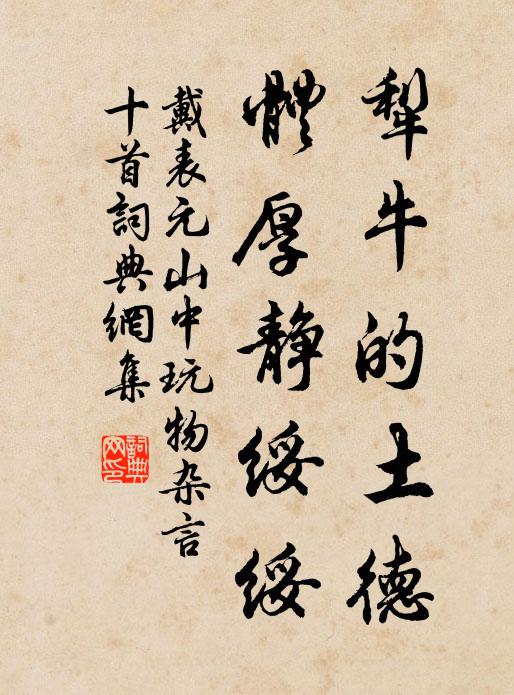 犁牛的土德
體厚静綏綏
戴表元山中玩物杂言
十首詞典網集
詞典网印